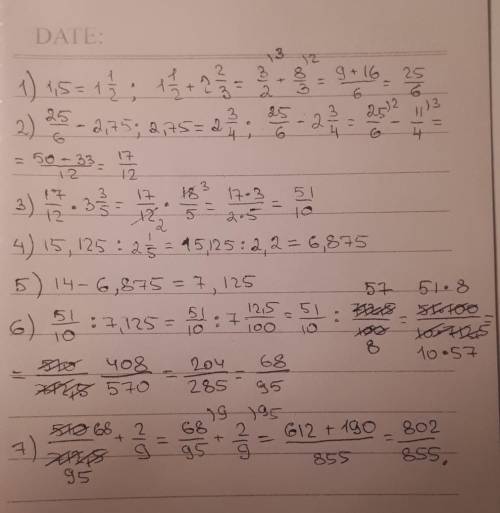 DATE:
1) 1,5 = 1 1/2 ; 1 1/2 + 2 2/3 = 3/2 ⁾³ + 8/3 ⁾² = (9+16)/6 = 25/6
2) 25/6 - 2,75 ; 2,75 = 2 3/4 ; 25/6 - 2 3/4 = 25/6 ⁾² - 11/4 ⁾³ =
= (50-33)/12 = 17/12
3) 17/12 · 3 3/5 = 17/12 2 · 18/5 3 = (17·3)/(2·5) = 51/10
4) 15,125 : 2 1/5 = 15,125 : 2,2 = 6,875
5) 14 - 6,875 = 7,125
6) 51/10 : 7,125 = 51/10 : 7 12,5/100 = 51/10 : 57/8 = (51·8)/(10·57)
= 408/570 = 204/285 = 68/95
7) 68/95 + 2/9 = 68/95 ⁾⁹ + 2/9 ⁾⁹⁵ = (612+190)/855 = 802/855.